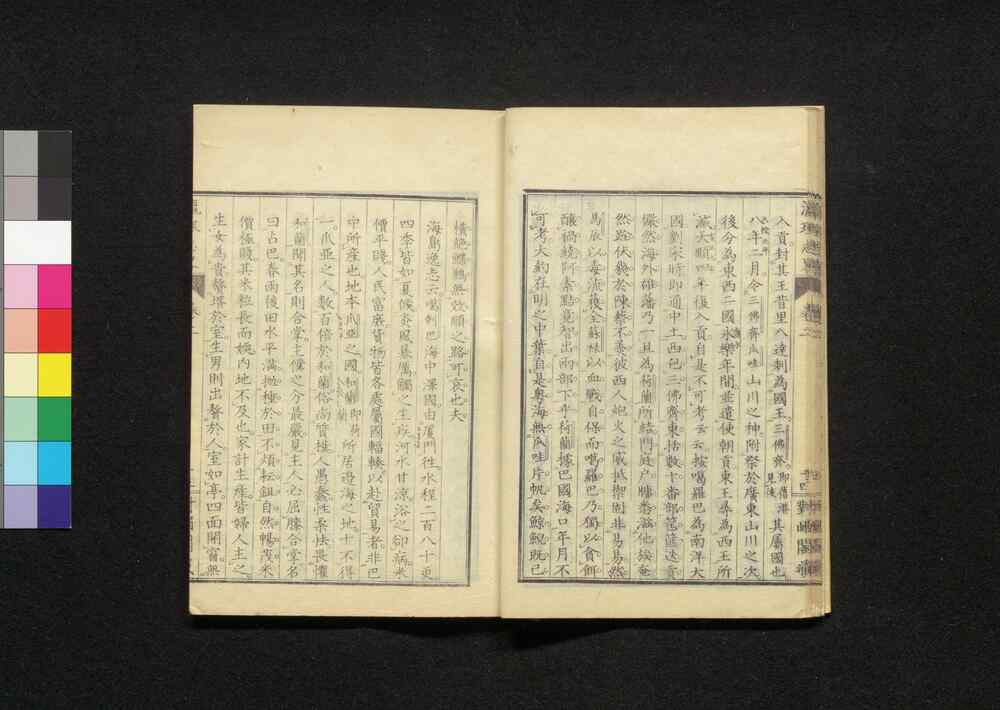 入貢封其王昔里八達剌為國王三佛齊即舊港見後其屬國也
八年二月令三佛齊瓜哇山川之神附祭於廣東山川之次
後分為東西二國永樂年間並遣使朝貢東王尋為西王所
滅天順四年復入貢自是不可考云云按噶羅巴為南洋大
國劉宋時即通中土西包三佛齊東括數十番部琛筐迭貢
儼然海外雄藩乃一旦為荷蘭所據門庭戶牖悉滋他族奄
然延敵伏幾於陳蔡不羹彼西人炮火之威抵禦固非易易然
馬辰以毒流後全蘇祿以血戰自保而噶羅巴乃獨以貪餌
釀禍繞阿素黠竟智出兩部下乎荷蘭據巴國海口年月不
可考大約在明之中葉自是粵海無瓜哇片帆矣鯨鯢既已
橫絶鱷鵝無效順之路可哀也夫
海島逸志云噶喇巴海中澤國由厦門往水程二百八十更
四季皆如夏候炎風暴厲觸之生疾河水甘涼浴之却病米
價平賤人民富庶貨物皆各處屬國輻輳以赴貿易者非巴
中所產也地本爪亞之國和蘭即荷蘭所居邊海之地十不得
一爪亞之人數百倍於和蘭俗尚質樸人愚蠢性柔怯畏懼
和蘭聞其名則合掌主僕之分最嚴見主人必屈膝合掌名
曰占巴春雨後田水平滿撒種於田不煩耘鋤自然暢茂米
價極賤其米粒長而娛內地不及也家計生產皆婦人主之
生女為貴贅壻於室生男則出贅於人室如亭四面開窗無